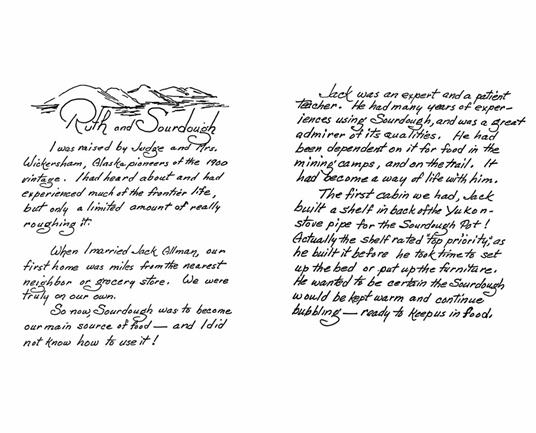 Ruth and Sourdough
I was raised by Judge and Mrs.
Wickersham, Alaska pioneers of the 1900
vintage. I had heard about and had
experienced much of the frontier life,
but only a limited amount of really
roughing it.
When I married Jack Allman, our
first home was miles from the nearest
neighbor or grocery store. We were
truly on our own.
So now, Sourdough was to become
our main source of food — and I did
not know how to use it!
Jack was an expert and a patient
teacher. He had many years of exper-
iences using Sourdough, and was a great
admirer of its qualities. He had
been dependent on it for food in the
mining camps, and on the trail. It
had become a way of life with him.
The first cabin we had, Jack
built a shelf in back of the Yukon-
stove pipe for the Sourdough Pot!
Actually the shelf rated top priority, as
he built it before he took time to set
up the bed or put up the furniture.
He wanted to be certain the Sourdough
would be kept warm and continue
bubbling — ready to keep us in food.